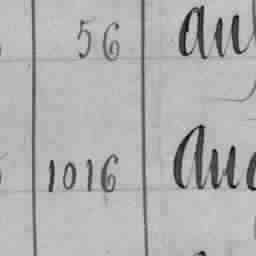 56 au
1016 Au